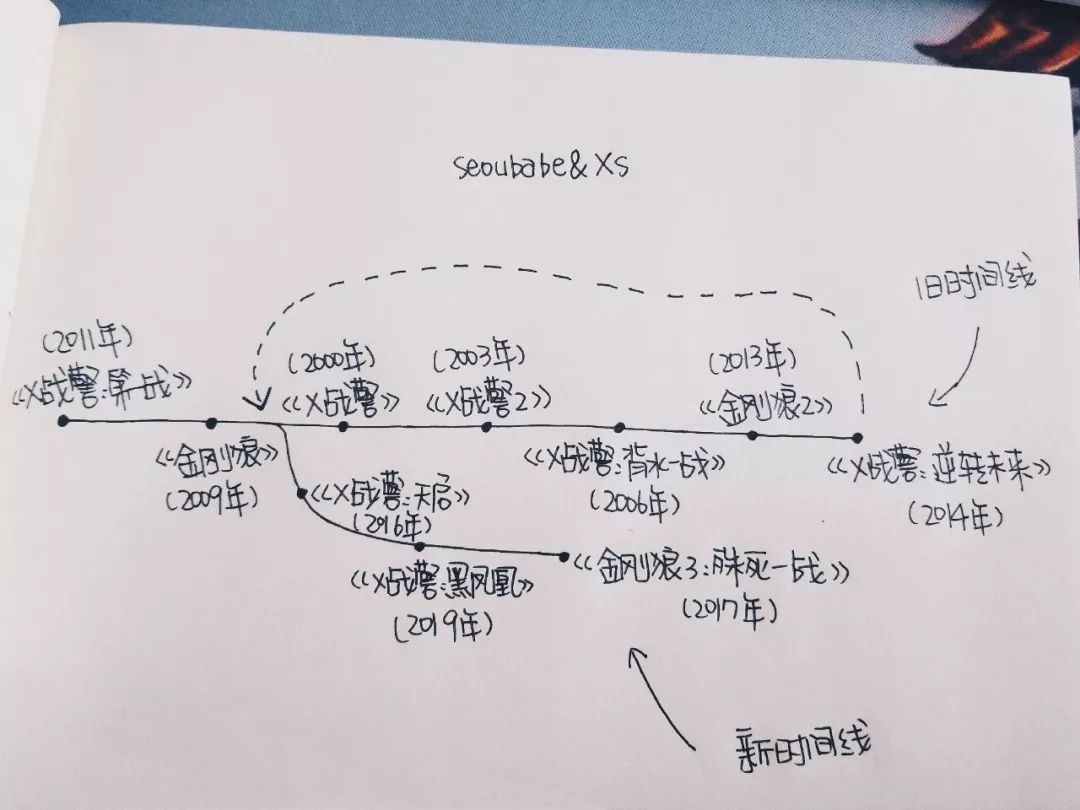 seoubabe&Xs
旧时间线
(2011年)
《X战警:第一战》
(2000年)
《X战警》
(2003年)
《X战警2》
(2013年)
《金刚狼2》
《金刚狼》
(2009年)
《X战警:背水一战》
(2006年)
《X战警:逆转未来》
(2014年)
《X战警:天启》
(2016年)
《X战警:黑凤凰》
(2019年)
《金刚狼3:殊死一战》
(2017年)
新时间线